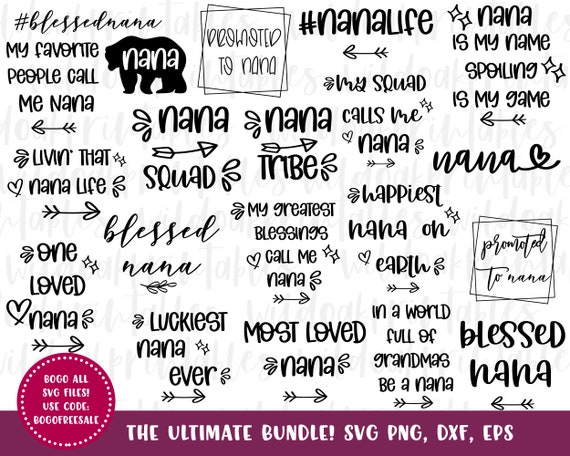 #blessednana
my favorite
people call
me nana
nana
PROMOTED
TO NANA
#nanalife
nana
is my name
spoiling
is my game
nana
squad
nana
tribe
my squad
calls me
nana
nana
livin' that
nana life
blessed
nana
my greatest
blessings
call me
nana
happiest
nana on
earth
promoted
to nana
one
loved
nana
luckiest
nana
ever
most loved
nana
in a world
full of
grandmas
be a nana
blessed
nana
BOGO ALL
SVG FILES!
USE CODE:
BOGOFREESALE
THE ULTIMATE BUNDLE! SVG PNG, DXF, EPS
wildoakprintables